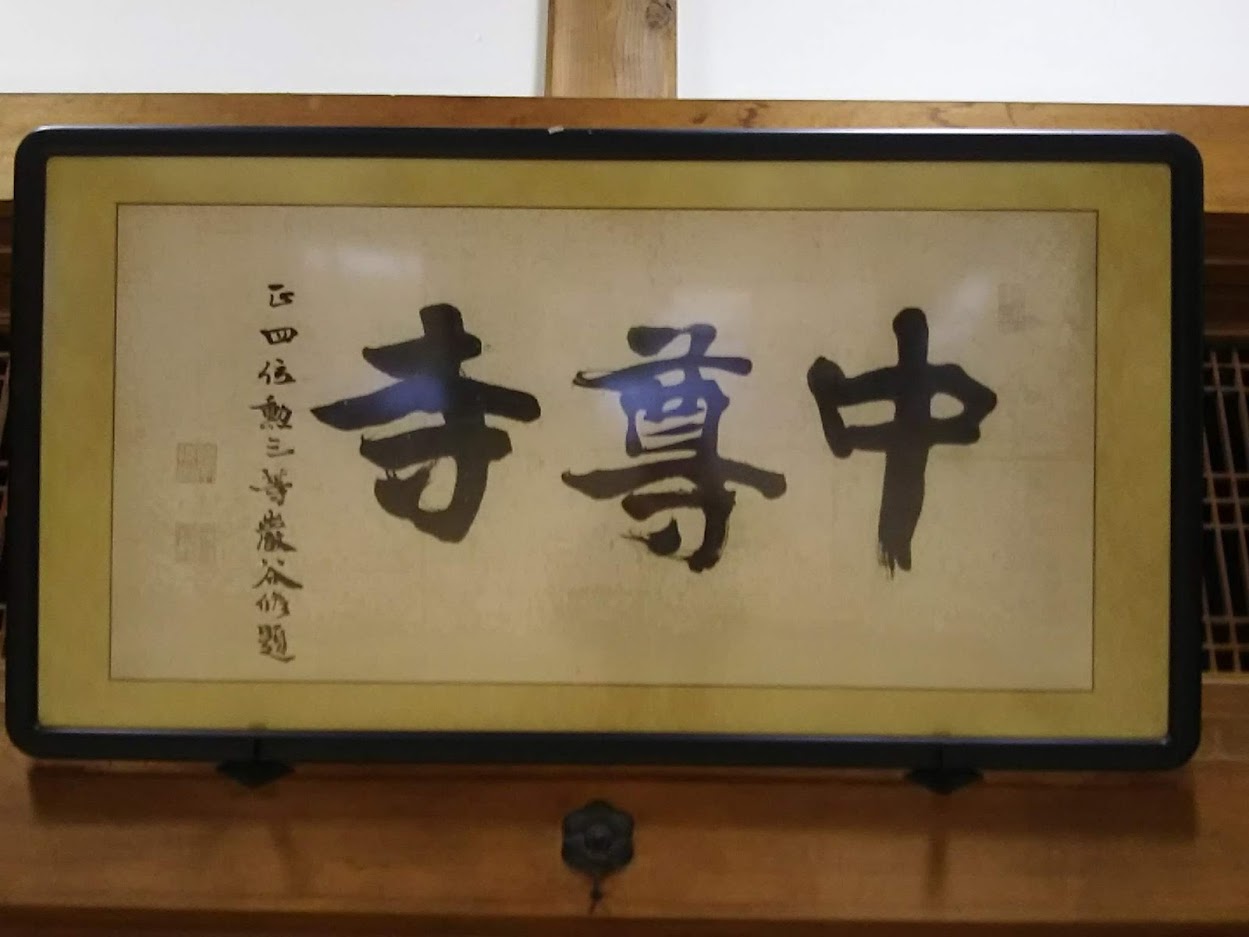 中尊寺
正四位勲三等巌谷修題